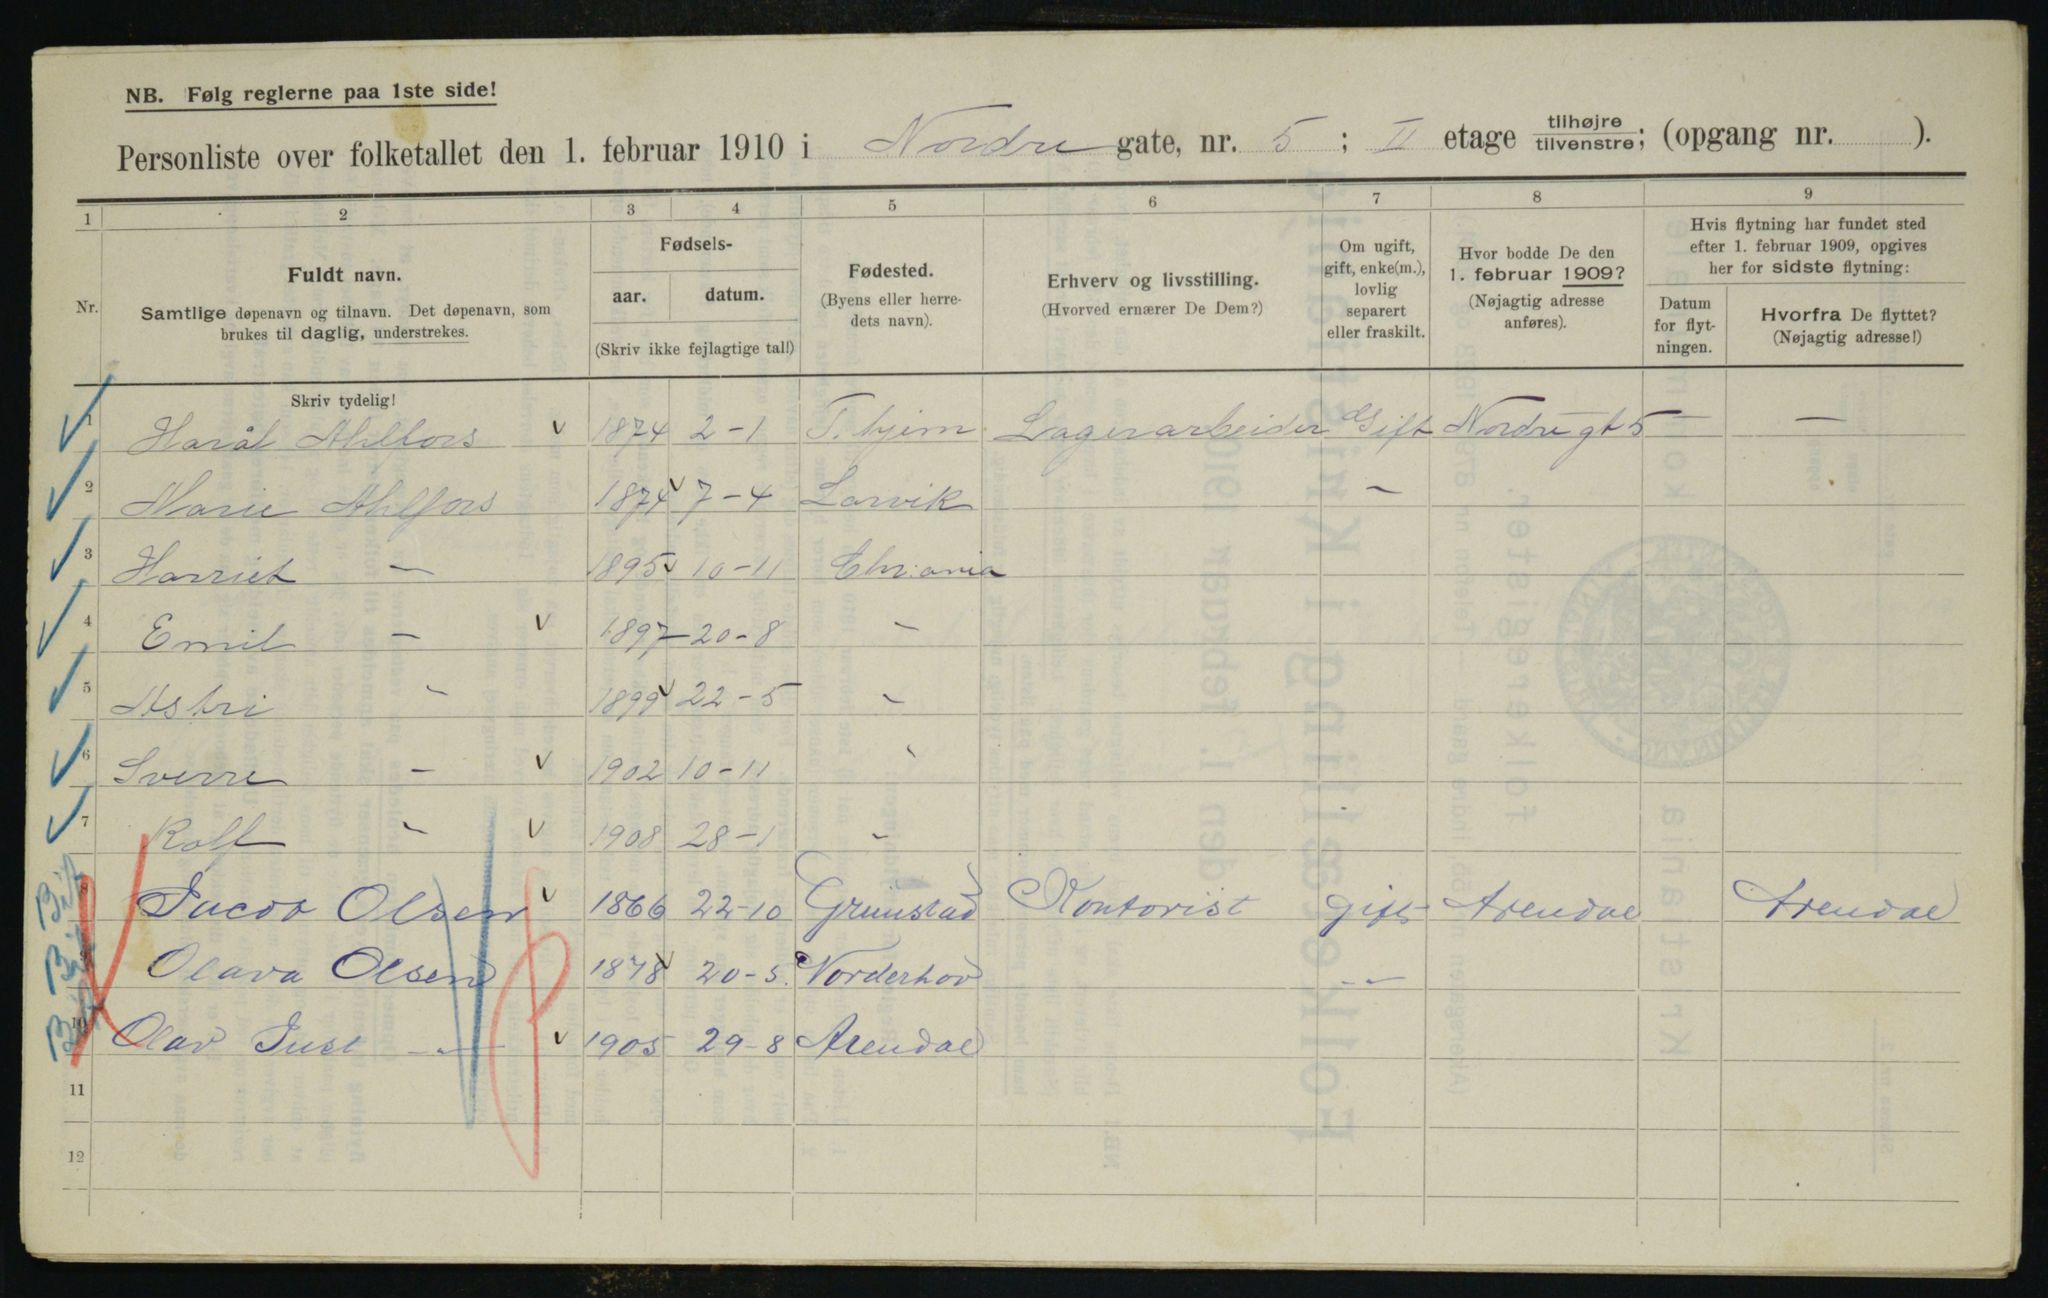 NB. Følg reglerne paa 1ste side!
Personliste over folketallet den 1. februar 1910 i Nordre gate, nr. 5 ; II etage tilhøjre/tilvenstre; (opgang nr. ).
1 2 3 4 5 6 7 8 9
Nr.
Fuldt navn.
Samtlige døpenavn og tilnavn. Det døpenavn, som
brukes til daglig, understrekes.
Fødsels-
aar. datum.
(Skriv ikke fejlagtige tal!)
Fødested.
(Byens eller herre-
dets navn).
Erhverv og livsstilling.
(Hvorved ernærer De Dem?)
Om ugift,
gift, enke(m.),
lovlig
separert
eller fraskilt.
Hvor bodde De den
1. februar 1909?
(Nøjagtig adresse
anføres).
Hvis flytning har fundet sted
efter 1. februar 1909, opgives
her for sidste flytning:
Datum
for flyt-
ningen.
Hvorfra De flyttet?
(Nøjagtig adresse!)
Skriv tydelig!
1 Haral Ahlfors 1874 2-1 T.hjem Lagerarbeider Gift Nordregt 5 —
2 Marie Ahlfors 1874 7-4 Larvik —
3 Harriet — 1895 10-11 Chr.ania
4 Emil — 1897 20-8 —
5 Astri — 1899 22-5 —
6 Sverre — 1902 10-11 —
7 Rolf — 1908 28-1 —
8 Jacob Olsen 1866 22-10 Grimstad Kontorist gift Arendal Arendal
9 Olava Olsen 1878 20-5 Norderhov —
10 Olav Just — 1905 29-8 Arendal
11
12